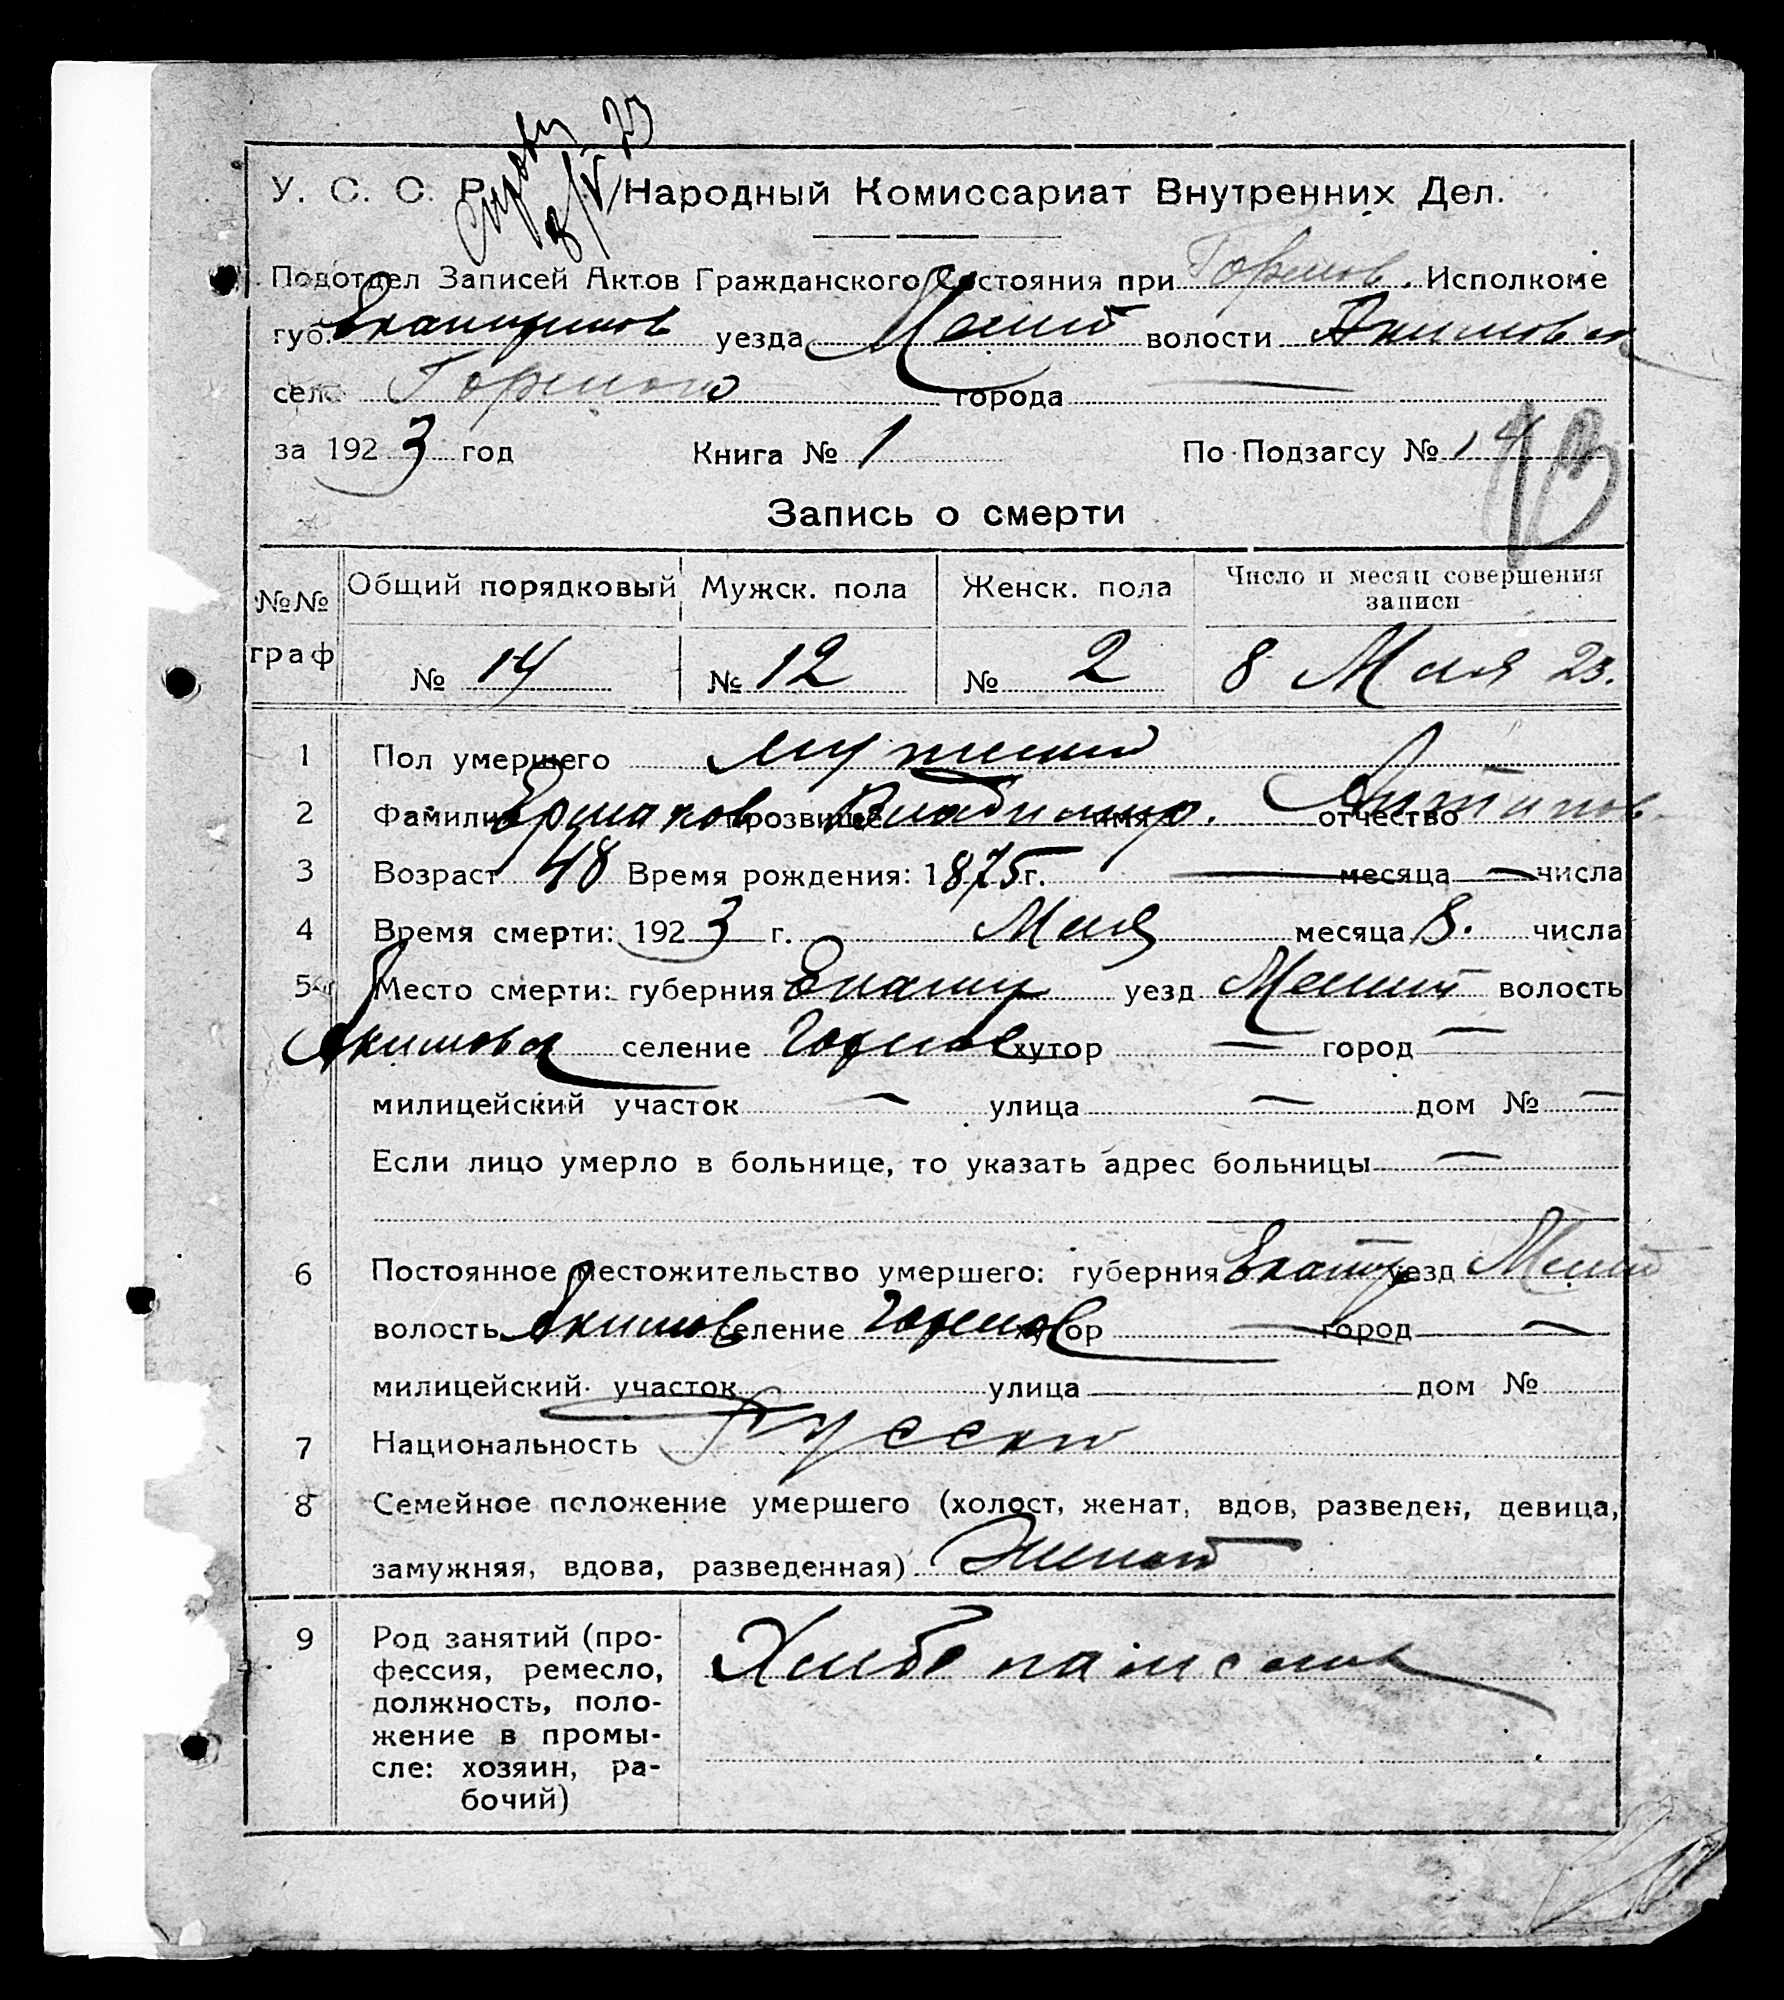 У. С. С. Р. Народный Комиссариат Внутренних Дел.
8/V 23
Подотдел Записей Актов Гражданского Состояния при Горелов. Исполкоме
губ. Екатеринов уезда Мелит волости Акимовск
село Горелого города —
за 1923 год Книга № 1 По Подзагсу № 14
13
Запись о смерти
№№ граф Общий порядковый Мужск. пола Женск. пола Число и месяц совершения записи
№ 14 № 12 № 2 8 Мая 23.
1 Пол умершего мужский
2 Фамилия Ермаков прозвище Владимир. имя отчество Антипов
3 Возраст 48 Время рождения: 1875 г. — месяца — числа
4 Время смерти: 1923 г. Мая месяца 8. числа
5 Место смерти: губерния Екатир уезд Мелит волость
Акимовск селение Горелое хутор — город —
милицейский участок — улица — дом № —
Если лицо умерло в больнице, то указать адрес больницы —
6 Постоянное местожительство умершего: губерния Екатир уезд Мелит
волость Акимов селение Горелов хутор — город —
милицейский участок улица дом №
7 Национальность Русский
8 Семейное положение умершего (холост, женат, вдов, разведен, девица,
замужняя, вдова, разведенная) Женат
9 Род занятий (про-
фессия, ремесло,
должность, поло-
жение в промы-
сле: хозяин, ра-
бочий)
Хлебопашец